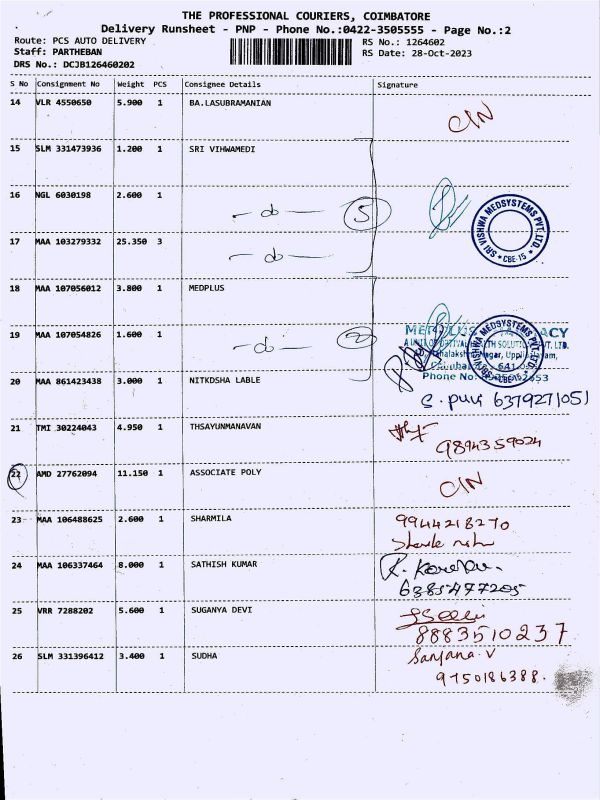 THE PROFESSIONAL COURIERS, COIMBATORE
Delivery Runsheet - PNP - Phone No.:0422-3505555 - Page No.:2
Route: PCS AUTO DELIVERY
RS No.: 1264602
Staff: PARTHEBAN
RS Date: 28-Oct-2023
DRS No.: DCJB126460202
S No Consignment No Weight PCS Consignee Details Signature
14 VLR 4550650 5.900 1 BA.LASUBRAMANIAN
C/N
15 SLM 331473936 1.200 1 SRI VIHWAMEDI
16 NGL 6030198 2.600 1
- do - 5
SRI VISHWA MEDSYSTEMS PVT. LTD. * CBE-15 *
17 MAA 103279332 25.350 3
- do -
18 MAA 107056012 3.800 1 MEDPLUS
19 MAA 107054826 1.600 1
- do - 2
20 MAA 861423438 3.000 1 NITKDSHA LABLE
Phone No:
6379271051
21 TMI 30224043 4.950 1 THSAYUNMANAVAN
9894359024
22 AMD 27762094 11.150 1 ASSOCIATE POLY
C/N
23 MAA 106488625 2.600 1 SHARMILA
9944218270
24 MAA 106337464 8.000 1 SATHISH KUMAR
6385477205
25 VRR 7288202 5.600 1 SUGANYA DEVI
8883510237
26 SLM 331396412 3.400 1 SUDHA
Sanjana.V
9750186388.